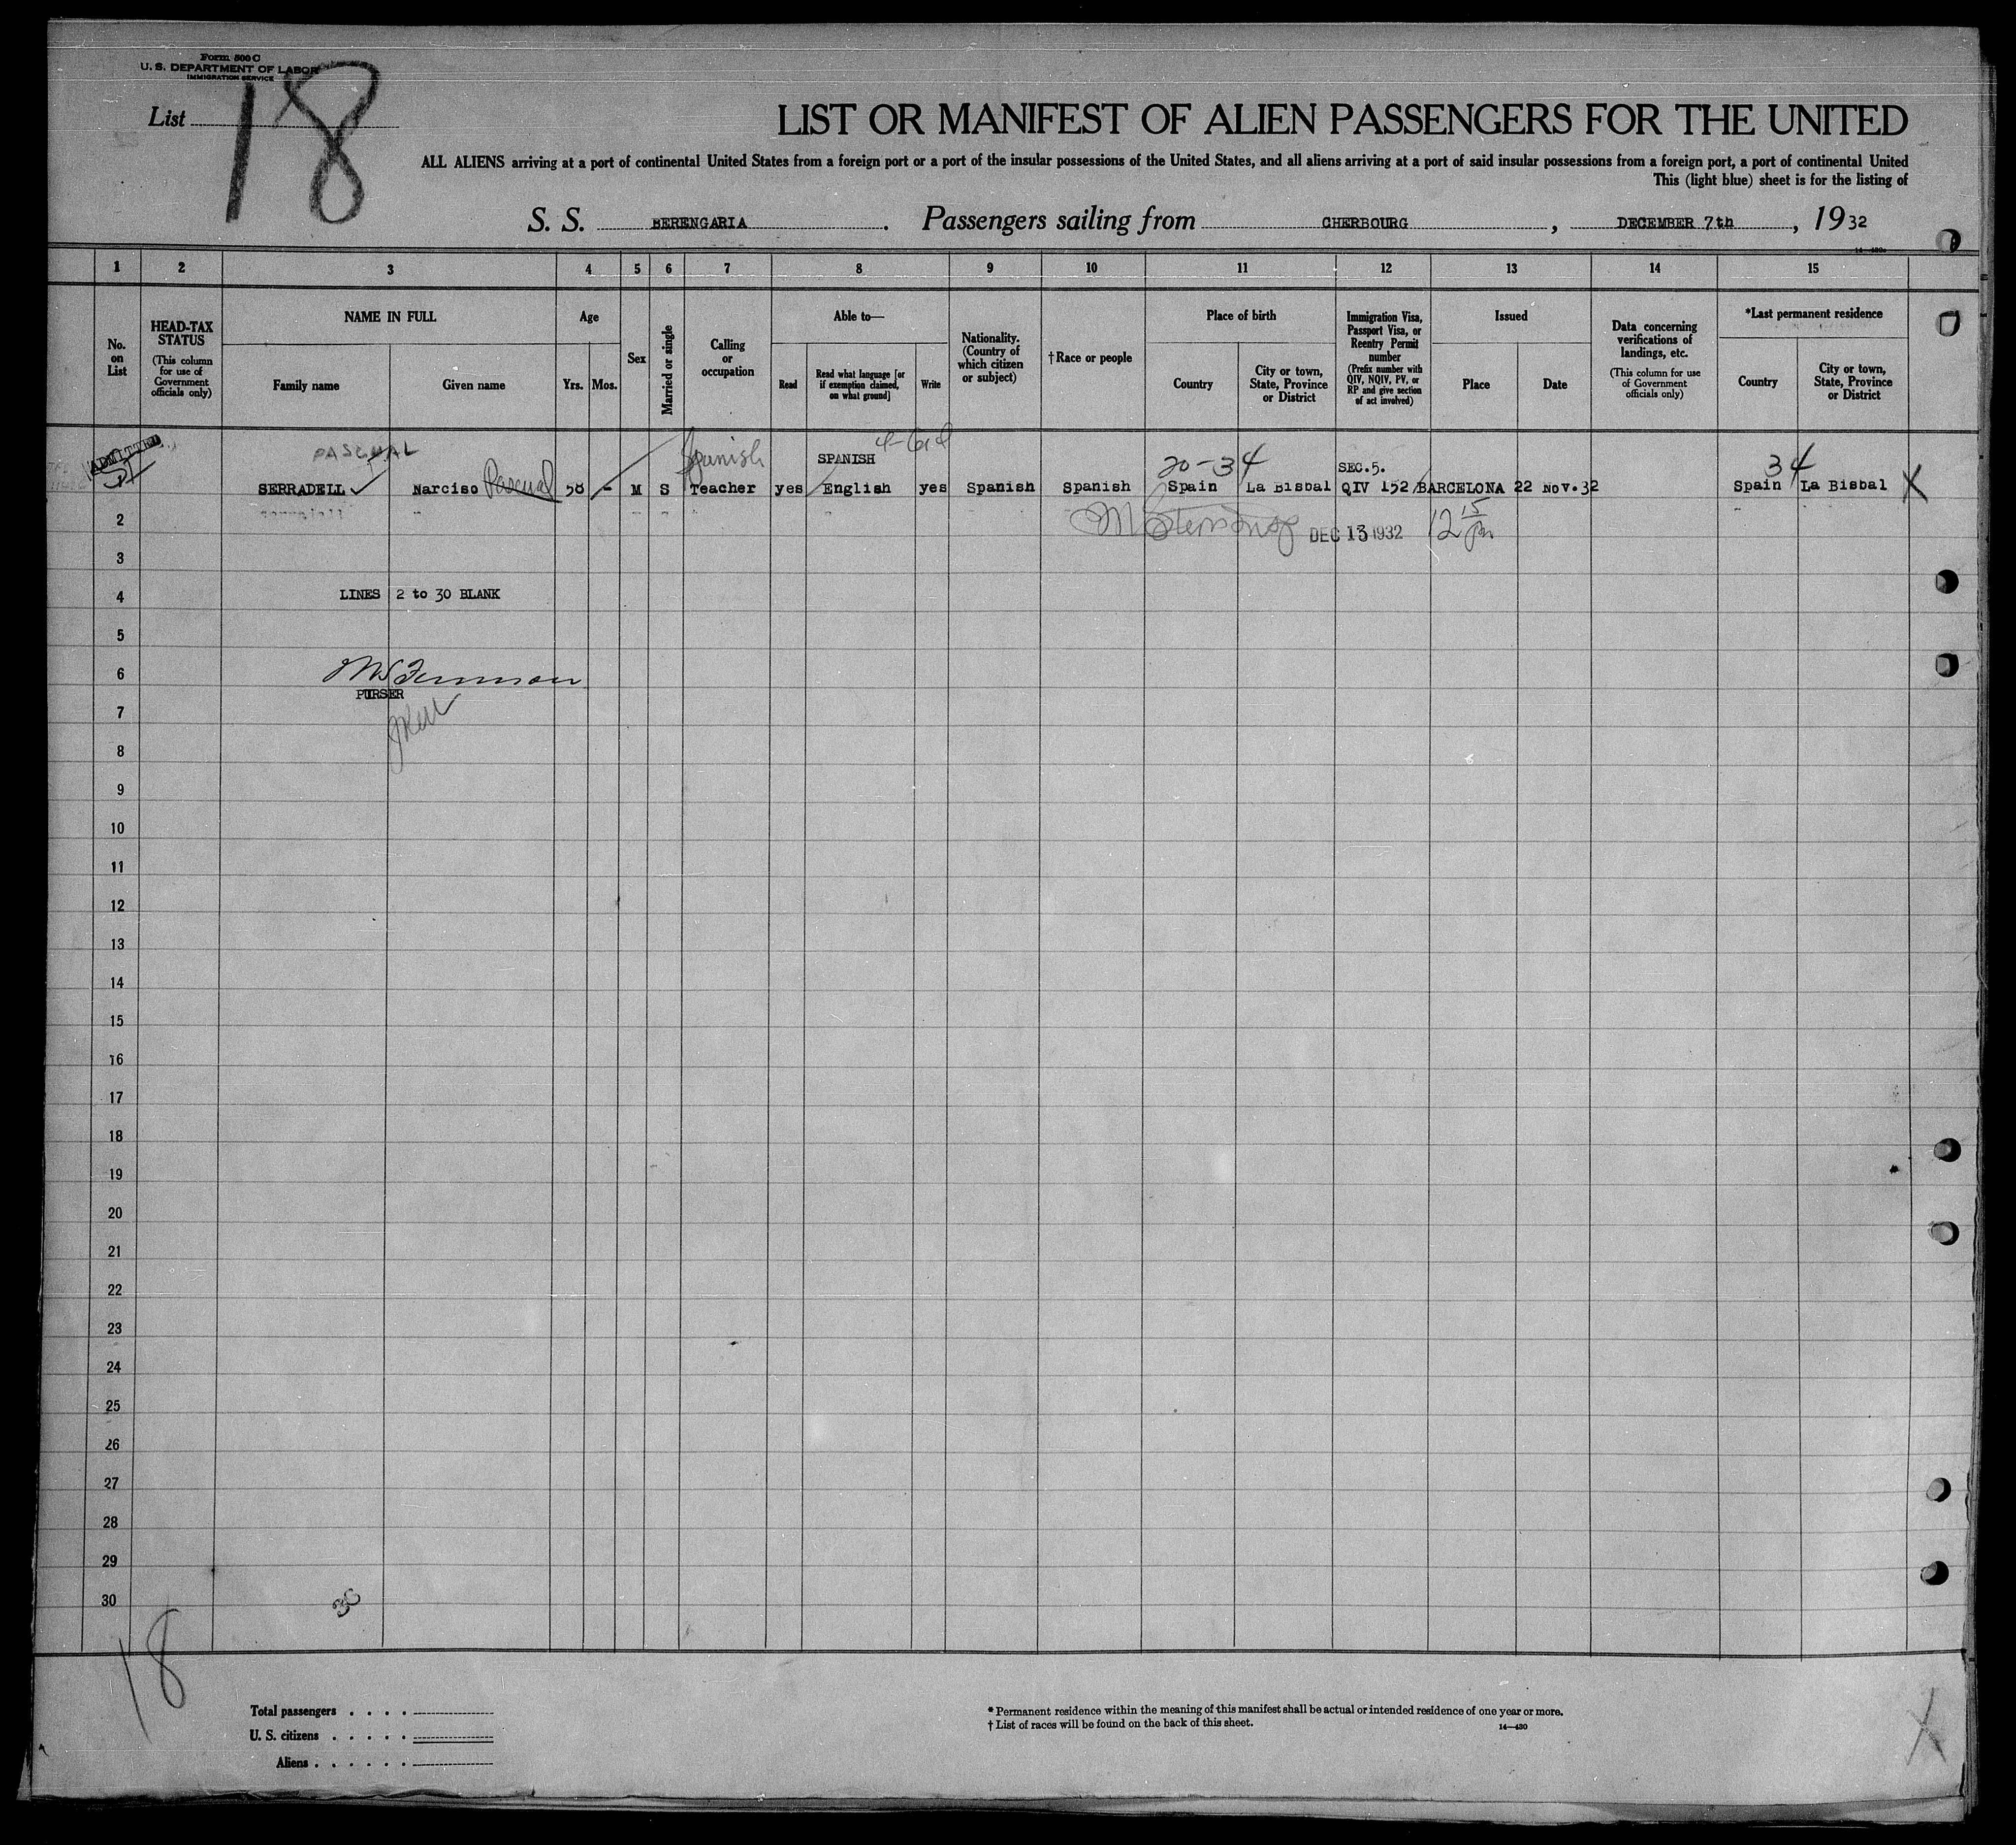 Form 500 C
U. S. DEPARTMENT OF LABOR
IMMIGRATION SERVICE
List 18
LIST OR MANIFEST OF ALIEN PASSENGERS FOR THE UNITED
ALL ALIENS arriving at a port of continental United States from a foreign port or a port of the insular possessions of the United States, and all aliens arriving at a port of said insular possessions from a foreign port, a port of continental United
This (light blue) sheet is for the listing of
S. S. BERENGARIA. Passengers sailing from CHERBOURG, DECEMBER 7th, 1932
14—430
1 2 3 4 5 6 7 8 9 10 11 12 13 14 15
No. on List
HEAD-TAX STATUS (This column for use of Government officials only)
NAME IN FULL
Family name Given name
Age
Yrs. Mos.
Sex
Married or single
Calling or occupation
Able to—
Read Read what language [or if exemption claimed, on what ground] Write
Nationality. (Country of which citizen or subject)
†Race or people
Place of birth
Country City or town, State, Province or District
Immigration Visa, Passport Visa, or Reentry Permit number (Prefix number with QIV, NQIV, PV, or RP and give section of act involved)
Issued
Place Date
Data concerning verifications of landings, etc. (This column for use of Government officials only)
*Last permanent residence
Country City or town, State, Province or District
ADMITTED PASCUAL Spanish SPANISH 20-34 SEC.5. 34
SERRADELL Narciso Pascual 58 - M S Teacher yes English yes Spanish Spanish Spain La Bisbal QIV 152 BARCELONA 22 Nov.32 Spain La Bisbal X
2 DEC 13 1932 12 15 pm
3
4 LINES 2 to 30 BLANK
5
6
PURSER
7
8
9
10
11
12
13
14
15
16
17
18
19
20
21
22
23
24
25
26
27
28
29
30 30
18
Total passengers . . . .
U. S. citizens . . . . .
Aliens . . . . . .
* Permanent residence within the meaning of this manifest shall be actual or intended residence of one year or more.
† List of races will be found on the back of this sheet. 14—430
X